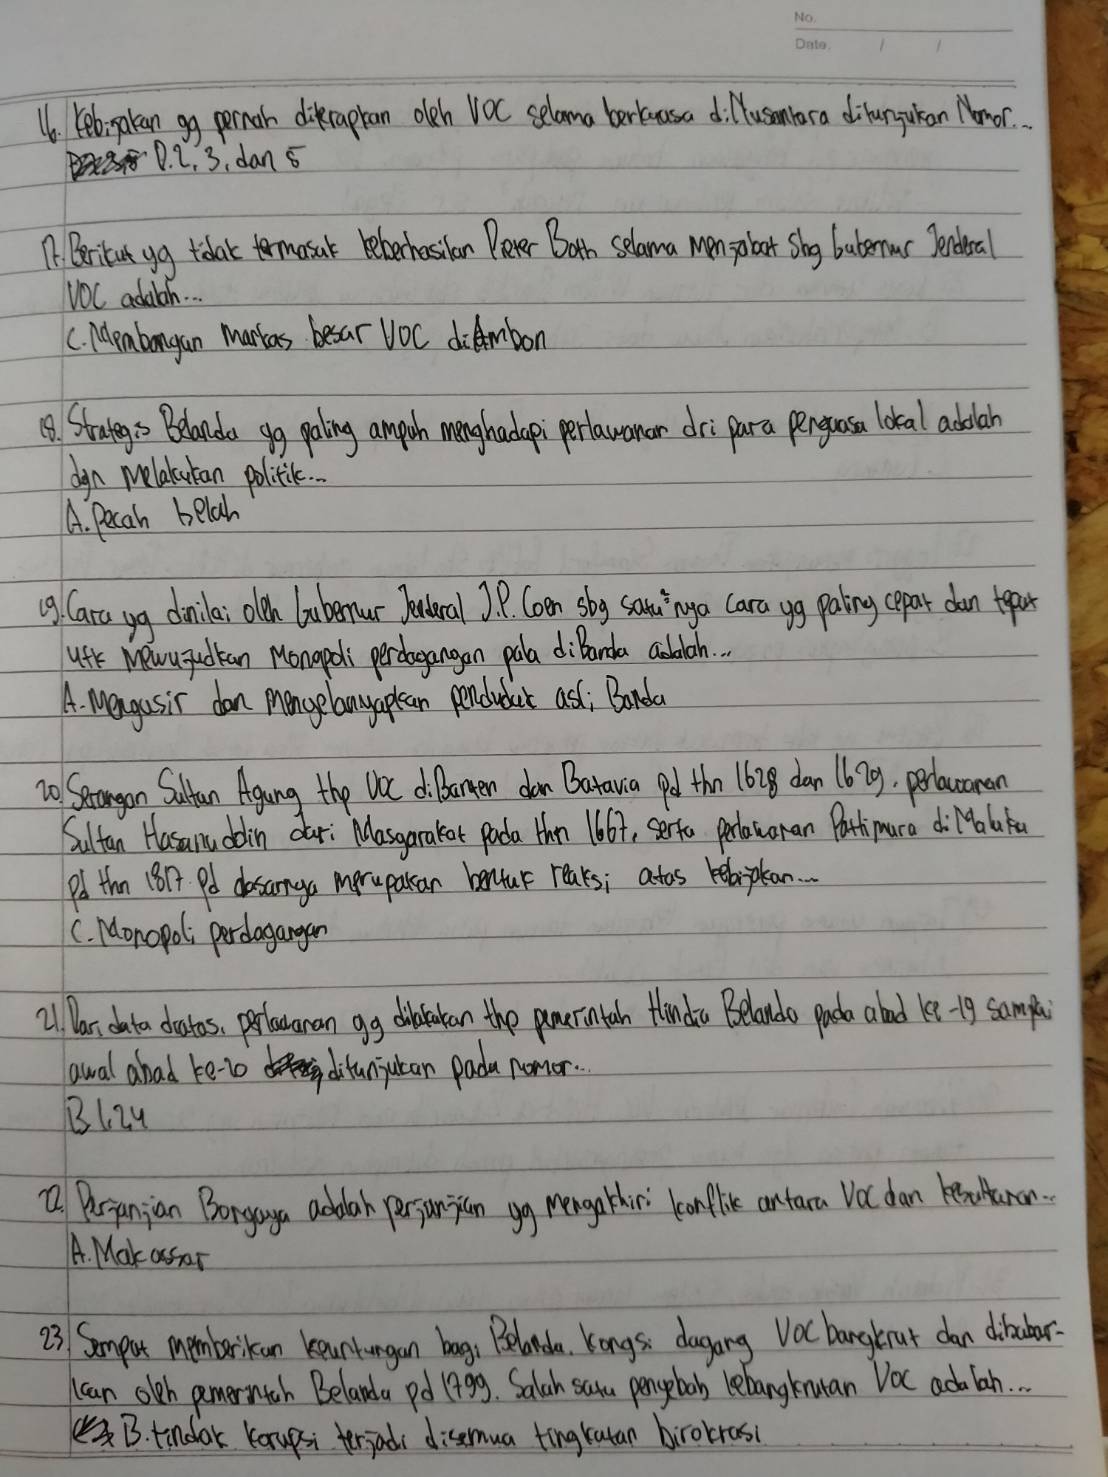 No.
Date. / /
16. Kebijakan yg pernah diterapkan oleh VOC selama berkuasa diNusantara ditunjukan Nomor...
D. 2, 3, dan 5
17. Berikut yg tidak termasuk keberhasilan Pieter Both selama menjabat sbg Gubernur Jenderal
VOC adalah...
C. Membangun Markas besar VOC diAmbon
18. Strategis Belanda yg paling ampuh menghadapi perlawanan dri para penguasa lokal adalah
dgn melakukan politik...
A. Pecah belah
19. Cara yg dinilai oleh Gubernur Jenderal J.P. Coen sbg satu²nya cara yg paling cepat dan tepat
utk mewujudkan Monopoli perdagangan pala diBanda adalah...
A. Mengusir dan mengelanyapkan penduduk asli Banda
20. Serangan Sultan Agung thp VOC diBanten dan Batavia pd thn 1628 dan 1629, perlawanan
Sultan Hasanuddin dari Masyarakat pada thn 1667, serta perlawanan Pattimura di Maluku
pd thn 1817 pd dasarnya merupakan bentuk reaksi atas kebijakan...
C. Monopoli perdagangan
21. Dari data diatas, perlawanan yg dilakukan thp pemerintah Hindia Belanda pada abad ke-19 sampai
awal abad ke-20 ditunjukan pada nomor...
B 1.24
22. Perjanjian Bongaya adalah perjanjian yg mengakhiri konflik antara VOC dan kesultanan...
A. Makassar
23. Sempat memberikan keuntungan bagi Belanda. kongsi dagang VOC bangkrut dan dibubar-
kan oleh pemerintah Belanda pd 1799. Salah satu penyebab kebangkrutan VOC adalah...
B. tindak korupsi terjadi disemua tingkatan birokrasi